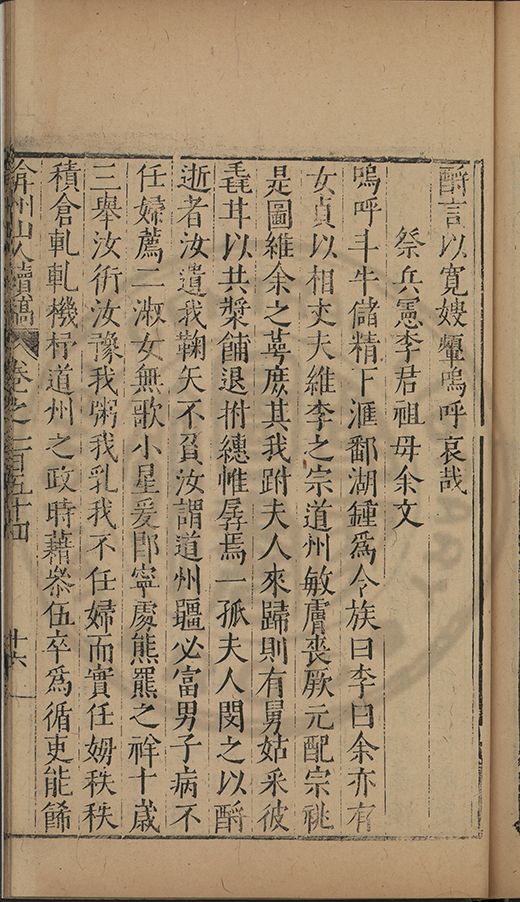 酹言以寛嫂顰嗚呼哀哉
祭兵憲李君祖母余文
嗚呼斗牛儲精下滙鄱湖鍾爲令族曰李曰余亦有
女貞以相丈夫維李之宗道州敏膚喪厥元配宗祧
是圖維余之蕚庶其我跗夫人來歸則有舅姑采彼
毳芼以共槳餔退拊繐帷孱焉一孤夫人閔之以酹
逝者汝遺我鞠矢不貧汝謂道州彊必富男子病不
任婦薦二淑女無歌小星爰卽寧處熊羆之祥十歳
三舉汝衎汝豫我粥我乳我不任婦而實任姆秩秩
積倉軋軋機杼道州之政時藉叅伍卒爲循吏能餙
弇州山人續稿 卷之一百五十四 十六